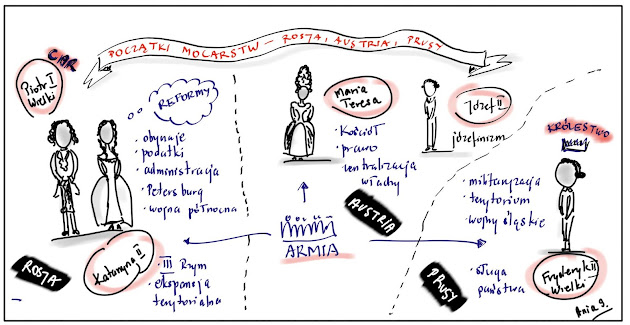 POCZĄTKI MOCARSTW – ROSJA, AUSTRIA, PRUSY
CAR
Piotr I
Wielki
REFORMY
• obyczaje
• podatki
• administracja
• Petersburg
• wojna północna
Katarzyna II
• III Rzym
• ekspansja
terytorialna
ROSJA
Maria
Teresa
• Kościół
• prawo
• centralizacja
władzy
Józef II
józefinizm
AUSTRIA
ARMIA
KRÓLESTWO
• militaryzacja
• terytorium
• wojny śląskie
• sługa
państwa
PRUSY
Fryderyk II
Wielki
Ania J.